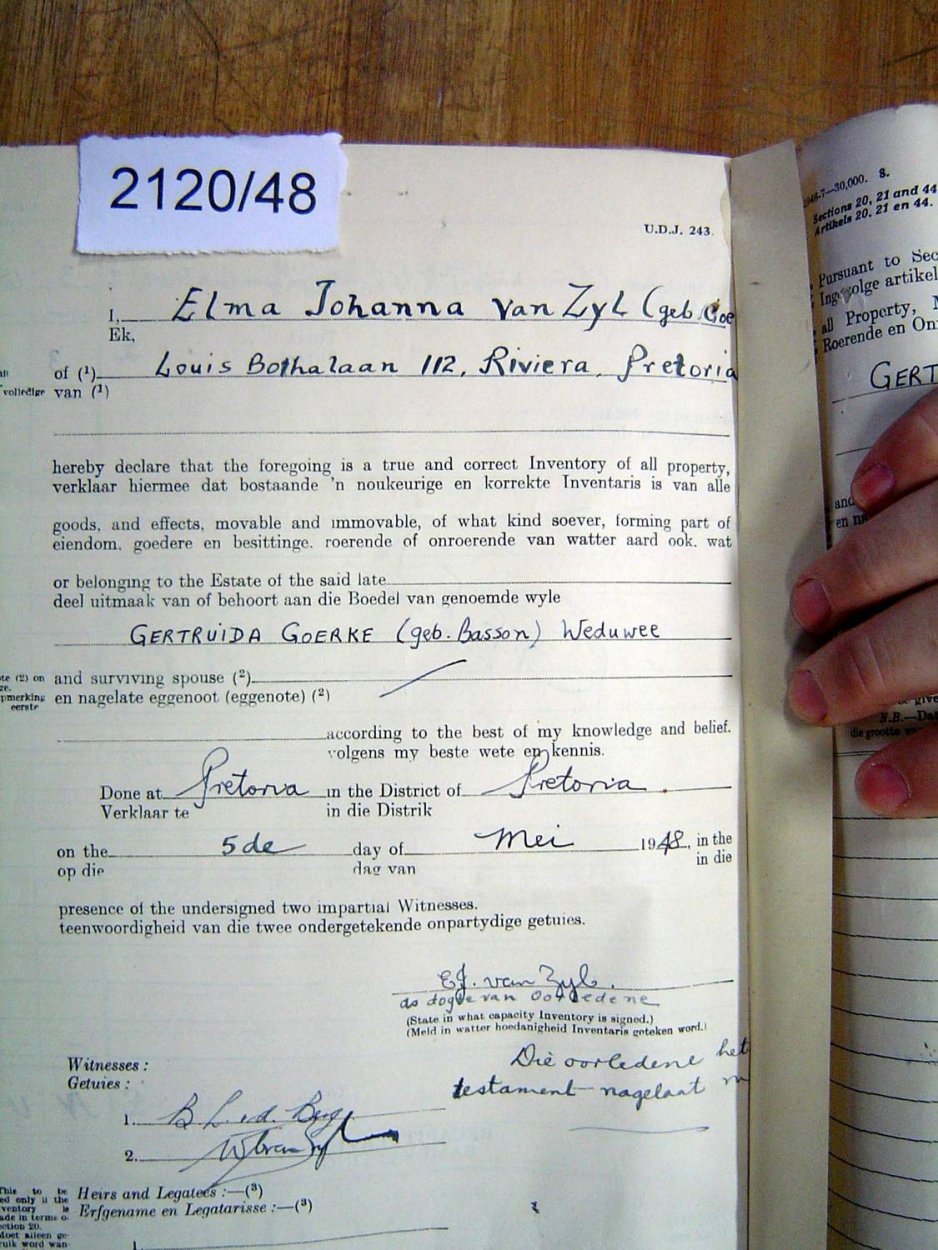 2120/48
U.D.J. 243.
I, Elma Johanna van Zyl (geb. Goe
Ek,
of (¹) Louis Bothalaan 112, Riviera, Pretoria
volledige van (¹)
hereby declare that the foregoing is a true and correct Inventory of all property,
verklaar hiermee dat bostaande 'n noukeurige en korrekte Inventaris is van alle
goods, and effects, movable and immovable, of what kind soever, forming part of
eiendom, goedere en besittinge, roerende of onroerende van watter aard ook, wat
or belonging to the Estate of the said late
deel uitmaak van of behoort aan die Boedel van genoemde wyle
GERTRUIDA GOERKE (geb. Basson) Weduwee
and surviving spouse (²)
en nagelate eggenoot (eggenote) (²)
te (2) on
ge.
pmerking
eerste
according to the best of my knowledge and belief.
volgens my beste wete en kennis.
Done at Pretoria in the District of Pretoria.
Verklaar te in die Distrik
on the 5de day of Mei 1948, in the
op die dag van in die
presence of the undersigned two impartial Witnesses.
teenwoordigheid van die twee ondergetekende onpartydige getuies.
E.J. van Zyl.
as dogte van oorledene
(State in what capacity Inventory is signed.)
(Meld in watter hoedanigheid Inventaris geteken word.)
Die oorledene het
testament nagelaat
Witnesses:
Getuies:
1. B L v.d. Berg
2.
Heirs and Legatees:—(³)
Erfgename en Legatarisse:—(³)
This to be
ed only if the
ventory is
ade in terms o
ection 20.
doet alleen ge-
ruik word wan-
1.
948-7—30,000. S.
Sections 20, 21 and 44
Artikels 20, 21 en 44.
Pursuant to Sec
Ingevolge artikel
all Property,
Roerende en On
GERT
and
en na
give
N.B.—Dat
die grootte